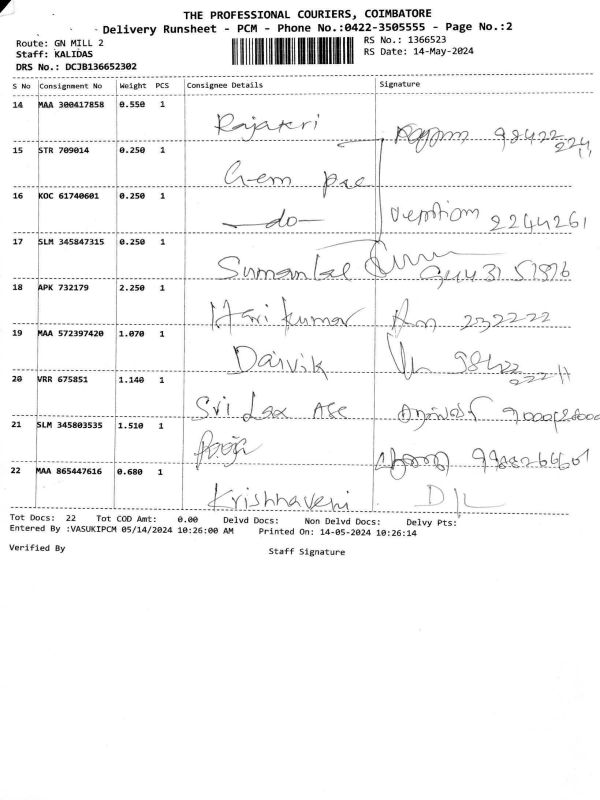 THE PROFESSIONAL COURIERS, COIMBATORE
Delivery Runsheet - PCM - Phone No.:0422-3505555 - Page No.:2
Route: GN MILL 2
RS No.: 1366523
Staff: KALIDAS
RS Date: 14-May-2024
DRS No.: DCJB136652302
S No Consignment No Weight PCS Consignee Details Signature
14 MAA 300417858 0.550 1
Rajateri
15 STR 709014 0.250 1
Gem
16 KOC 61740601 0.250 1
—do— 2244261
17 SLM 345847315 0.250 1
18 APK 732179 2.250 1
Hari kumar 232222
19 MAA 572397420 1.070 1
Darvik
20 VRR 675851 1.140 1
Sri Lax
21 SLM 345803535 1.510 1
Pooja
22 MAA 865447616 0.680 1
Krishhaveni
Tot Docs: 22 Tot COD Amt: 0.00 Delvd Docs: Non Delvd Docs: Delvy Pts:
Entered By :VASUKIPCM 05/14/2024 10:26:00 AM Printed On: 14-05-2024 10:26:14
Verified By Staff Signature